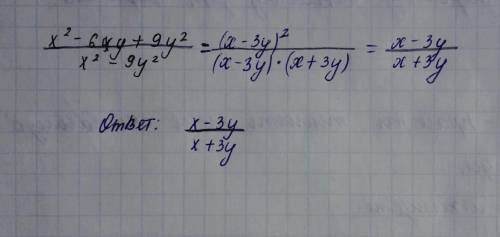 (x² - 6xy + 9y²)/(x² - 9y²) = (x - 3y)²/((x - 3y) · (x + 3y)) = (x - 3y)/(x + 3y)
Ответ: (x - 3y)/(x + 3y)